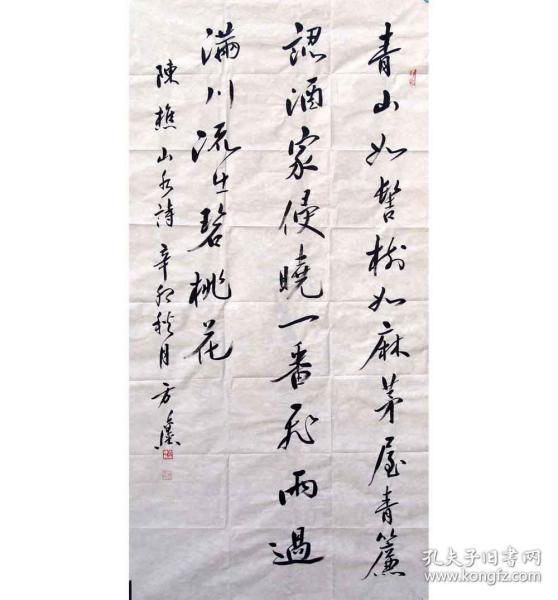 青山如髻樹如麻茅屋青簾
認酒家侵曉一番飛雨過
滿川流出碧桃花
陳樵山水詩 辛卯秋月 方
孔夫子旧书网
www.kongfz.com